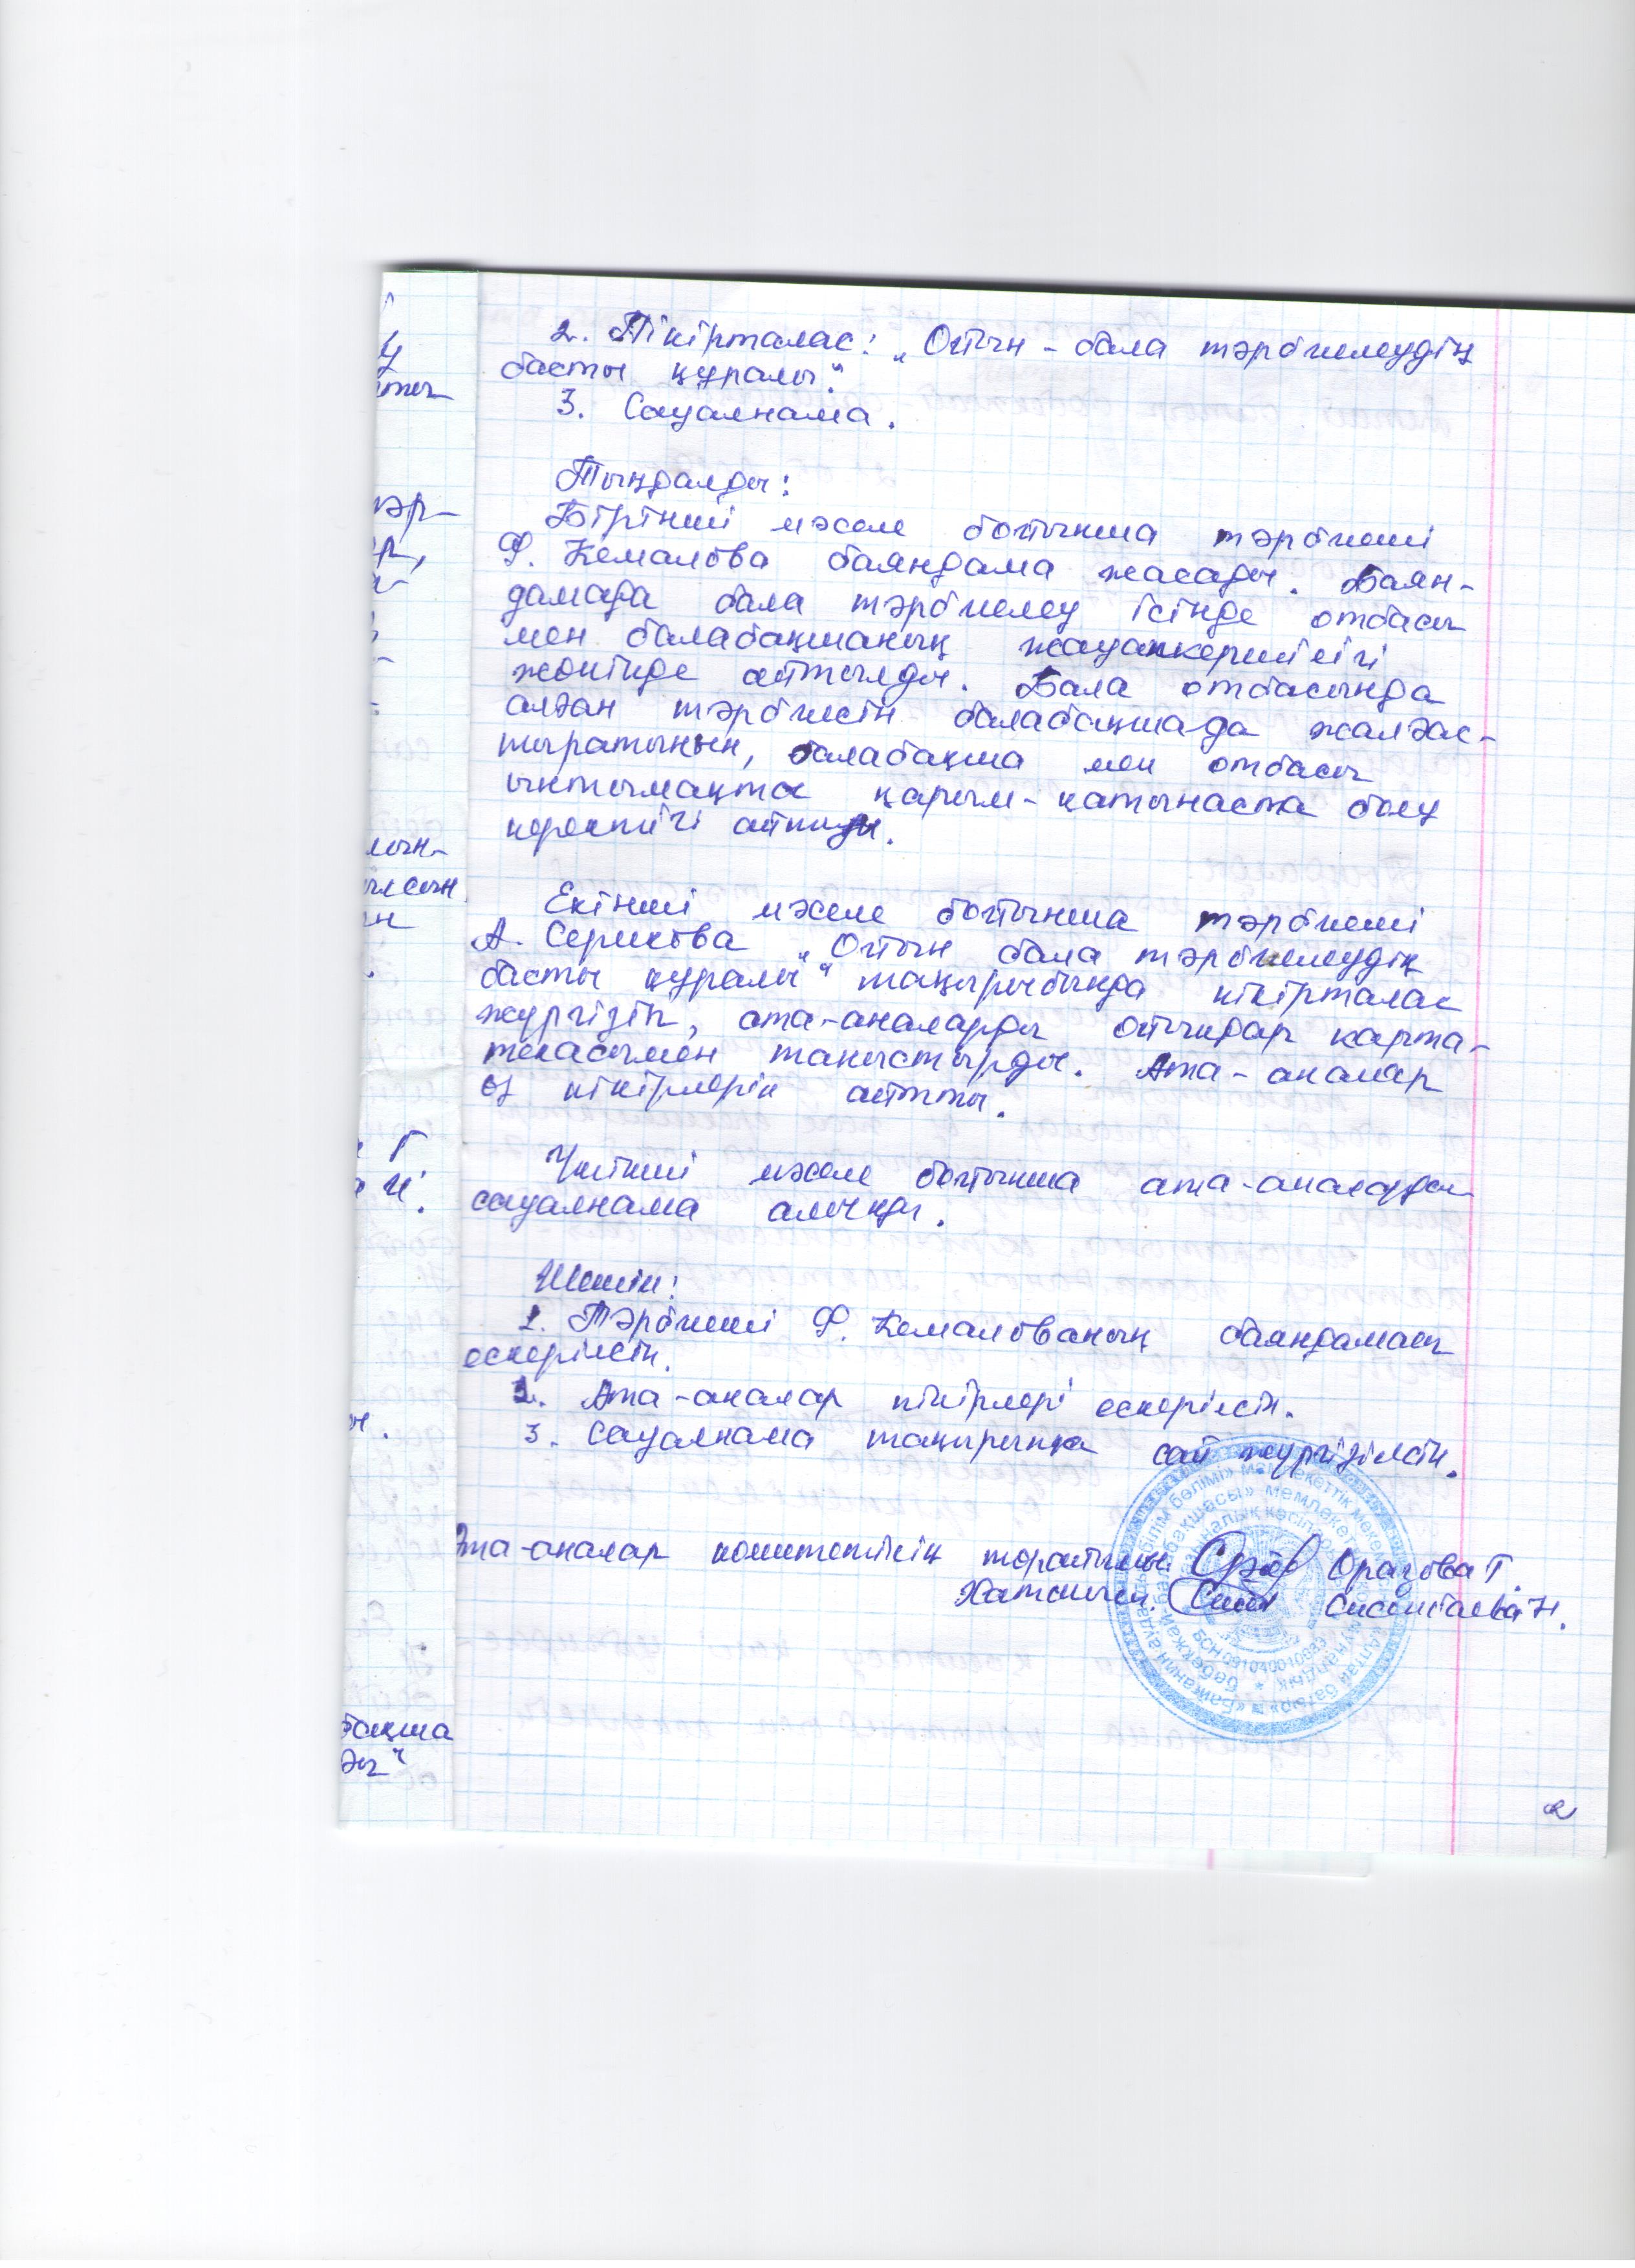 2. Пікірталас: „Ойын - бала тәрбиелеудің
басты құралы“.
3. Сауалнама.
Тыңдалды:
Бірінші мәселе бойынша тәрбиеші
Ф. Кемалова баяндама жасады. Баян-
дамада бала тәрбиелеу ісінде отбасы
мен балабақшаның жауапкершілігі
жөнінде айтылды. Бала отбасында
алған тәрбиесін балабақшада жалғас-
тыратынын, балабақша мен отбасы
ынтымақта қарым-қатынаста болу
керектігі айтылды.
Екінші мәселе бойынша тәрбиеші
А. Серикова „Ойын бала тәрбиелеудің
басты құралы“ тақырыбында пікірталас
жүргізіп, ата-аналарды ойындар карта-
текасымен таныстырды. Ата-аналар
өз пікірлерін айтты.
Үшінші мәселе бойынша ата-аналардан
сауалнама алынды.
Шешім:
1. Тәрбиеші Ф. Кемалованың баяндамасы
ескерілсін.
2. Ата-аналар пікірлері ескерілсін.
3. Сауалнама тақырыпқа сай жүргізілсін.
Ата-аналар комитетінің төрайымы: Оразова Г.
Хатшысы: Сисенбаева Н.
БСН 091040010983
2